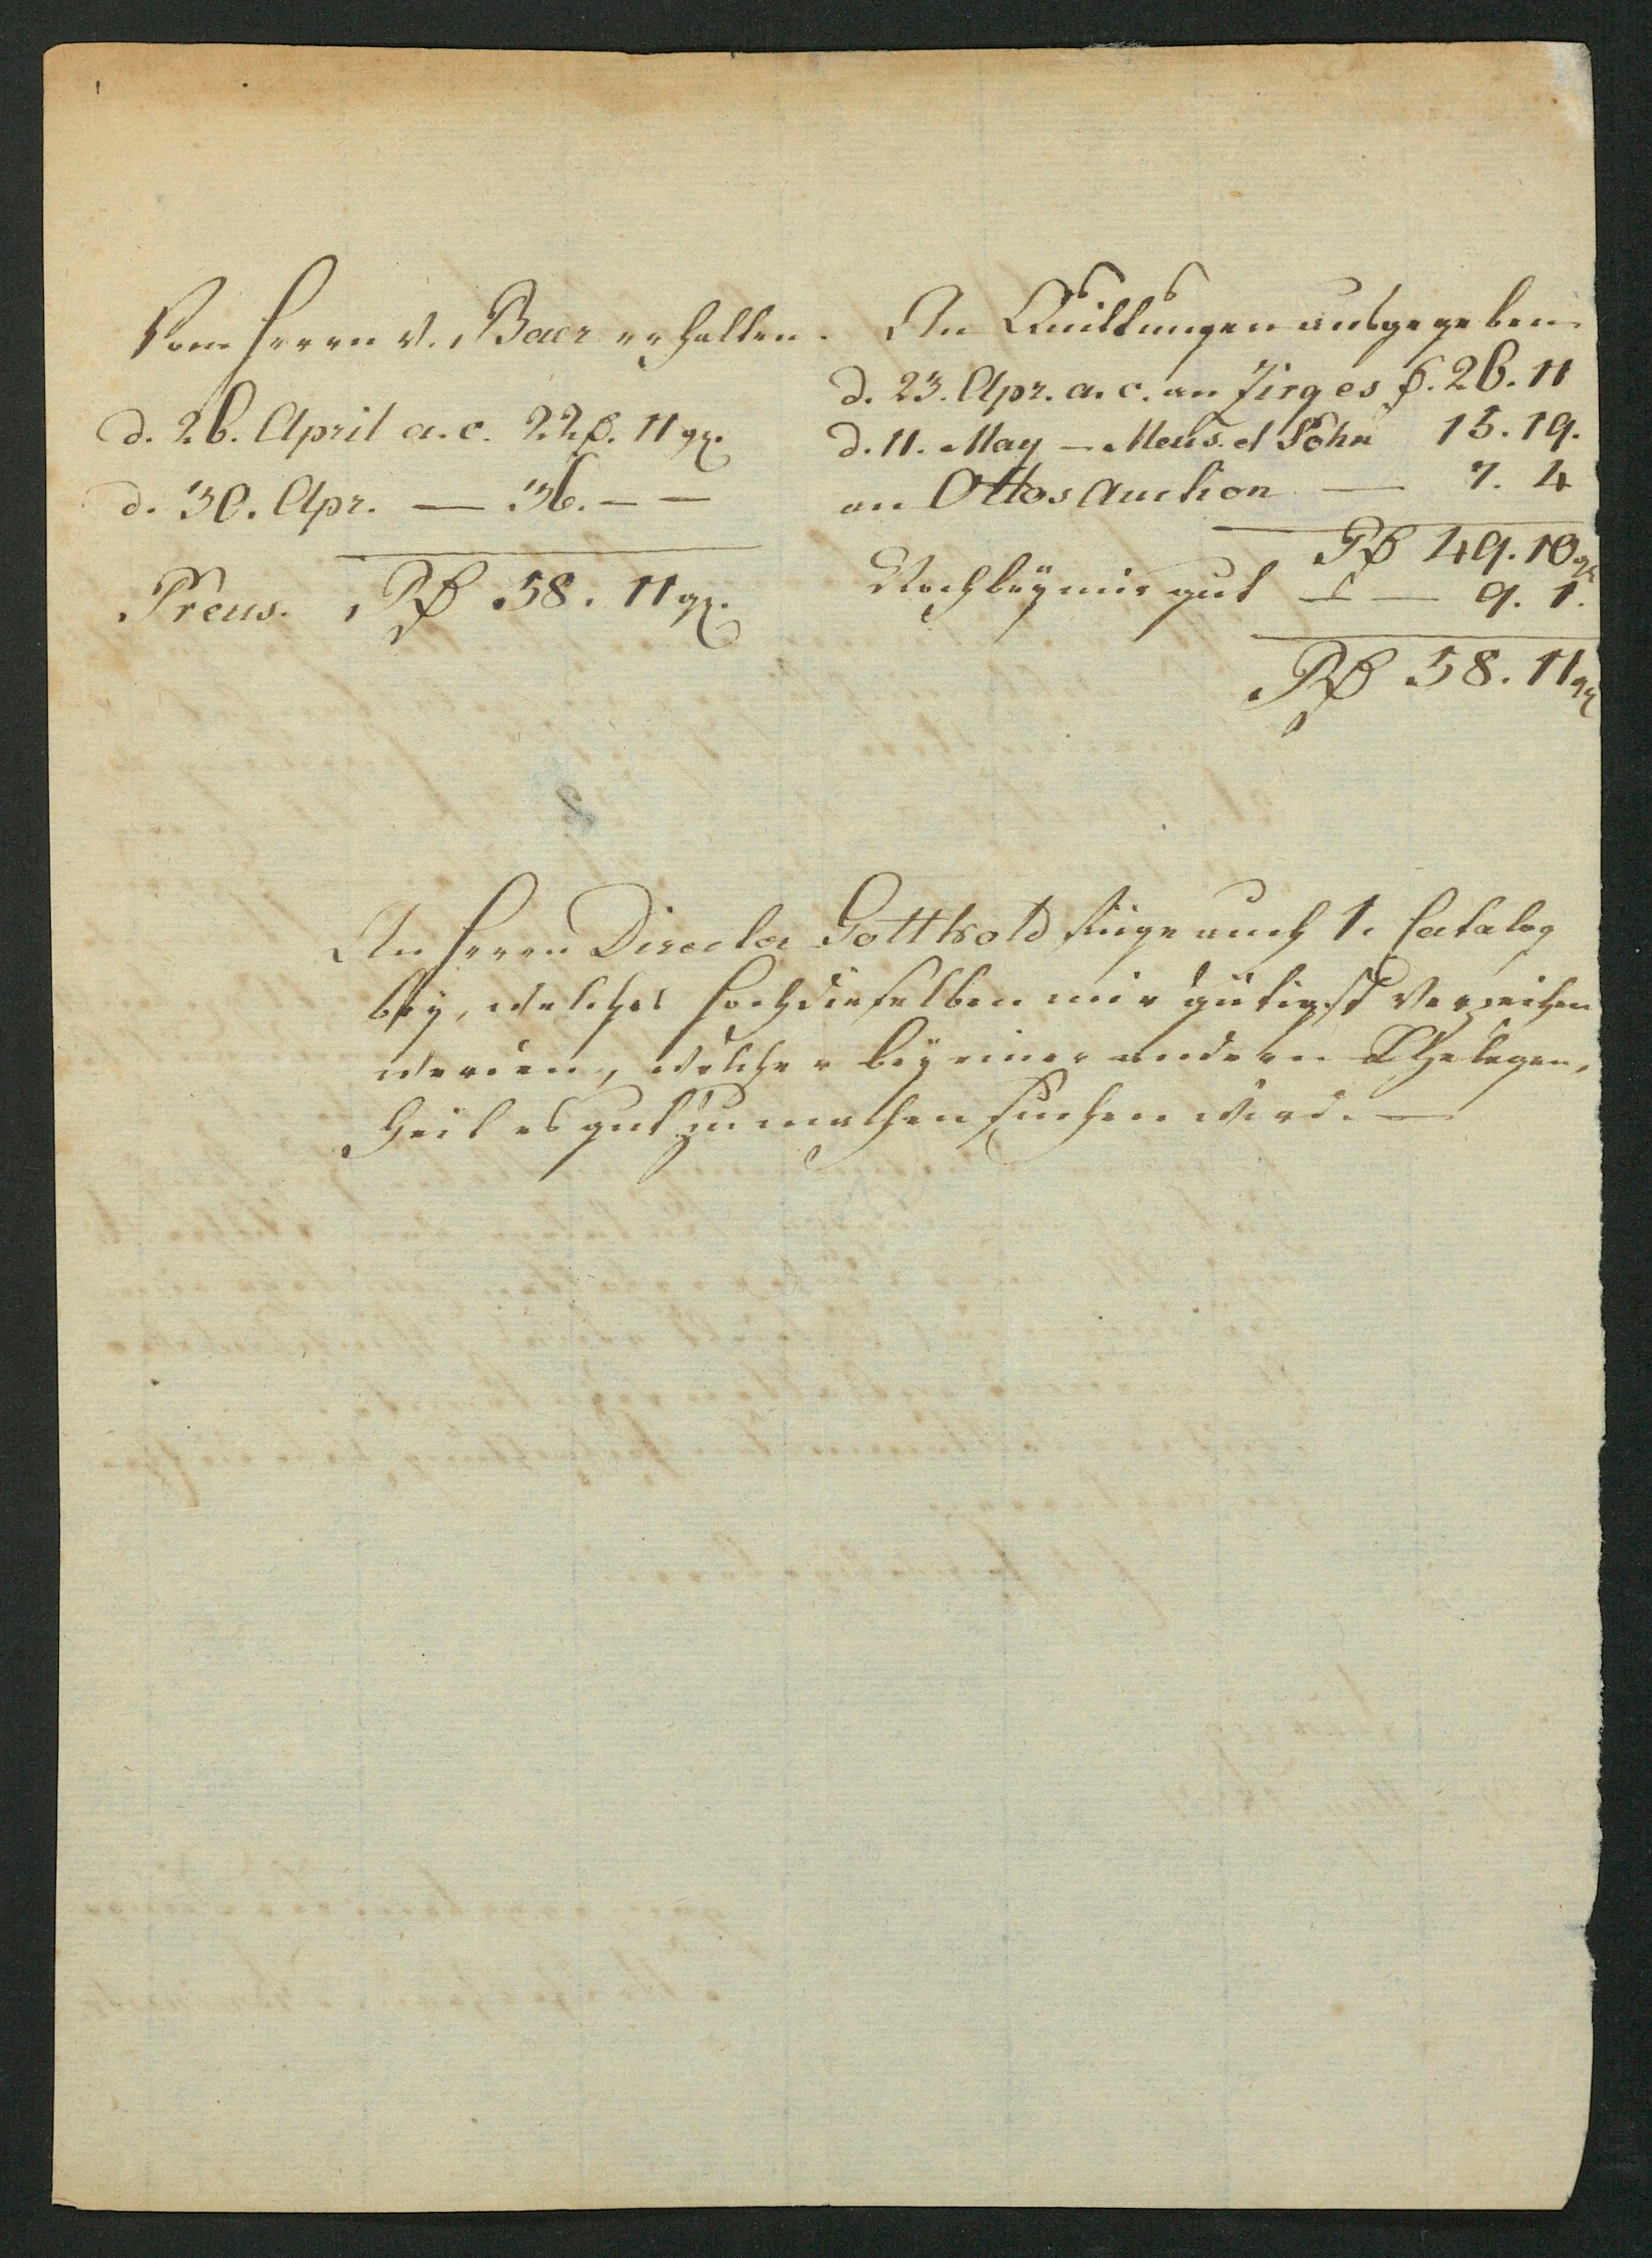 Vom Herrn v. Baer erhalten.
d. 26. April a. c. 22 rß. 11 gr.
d. 30. Apr. — 36. – –
Preus. Rß 58. 11 gr.
An Quittungen ausgegeben
d. 23. Apr. a. c. an Zirges rß. 26. 11
d. 11. May — Meus. et Sohn 15. 19.
an Ottos Auction — 7. 4
Rß 49. 10 gr
Noch bey mir gut — — 9. 1.
Rß 58. 11 gr
An Herrn Director Gotthold füge auch 1. Catalog
bey, welches Hochdieselben mir gütigst verzeihen
werden, welcher bey einer andern Gelegen,
heit es gut zu machen suchen wird. —